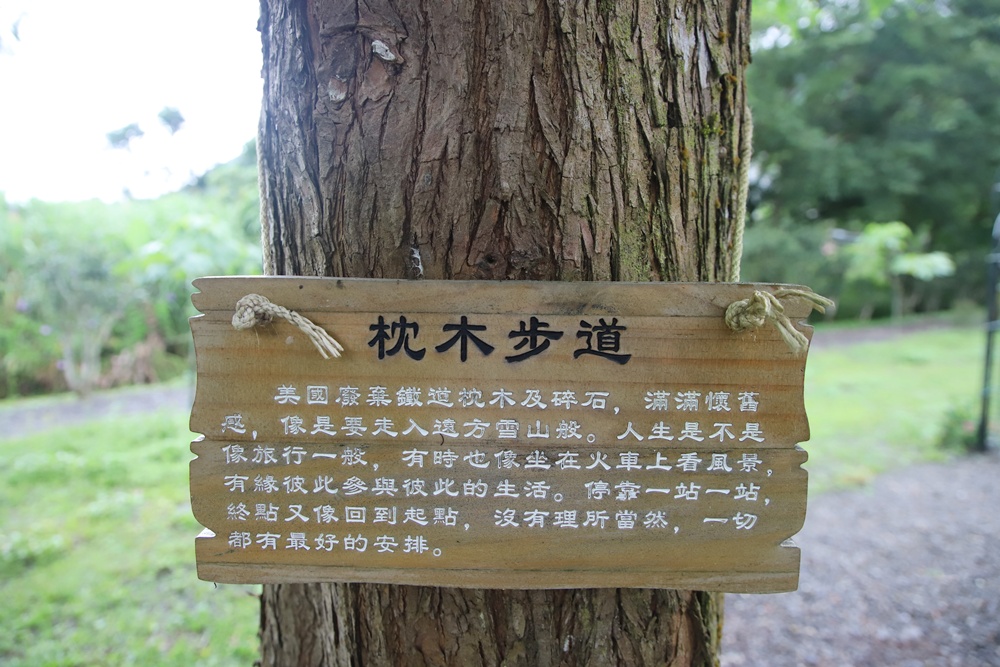 枕木步道
美國廢棄鐵道枕木及碎石，滿滿懷舊
感，像是要走入遠方雪山般。人生是不是
像旅行一般，有時也像坐在火車上看風景，
有緣彼此參與彼此的生活。停靠一站一站，
終點又像回到起點，沒有理所當然，一切
都有最好的安排。